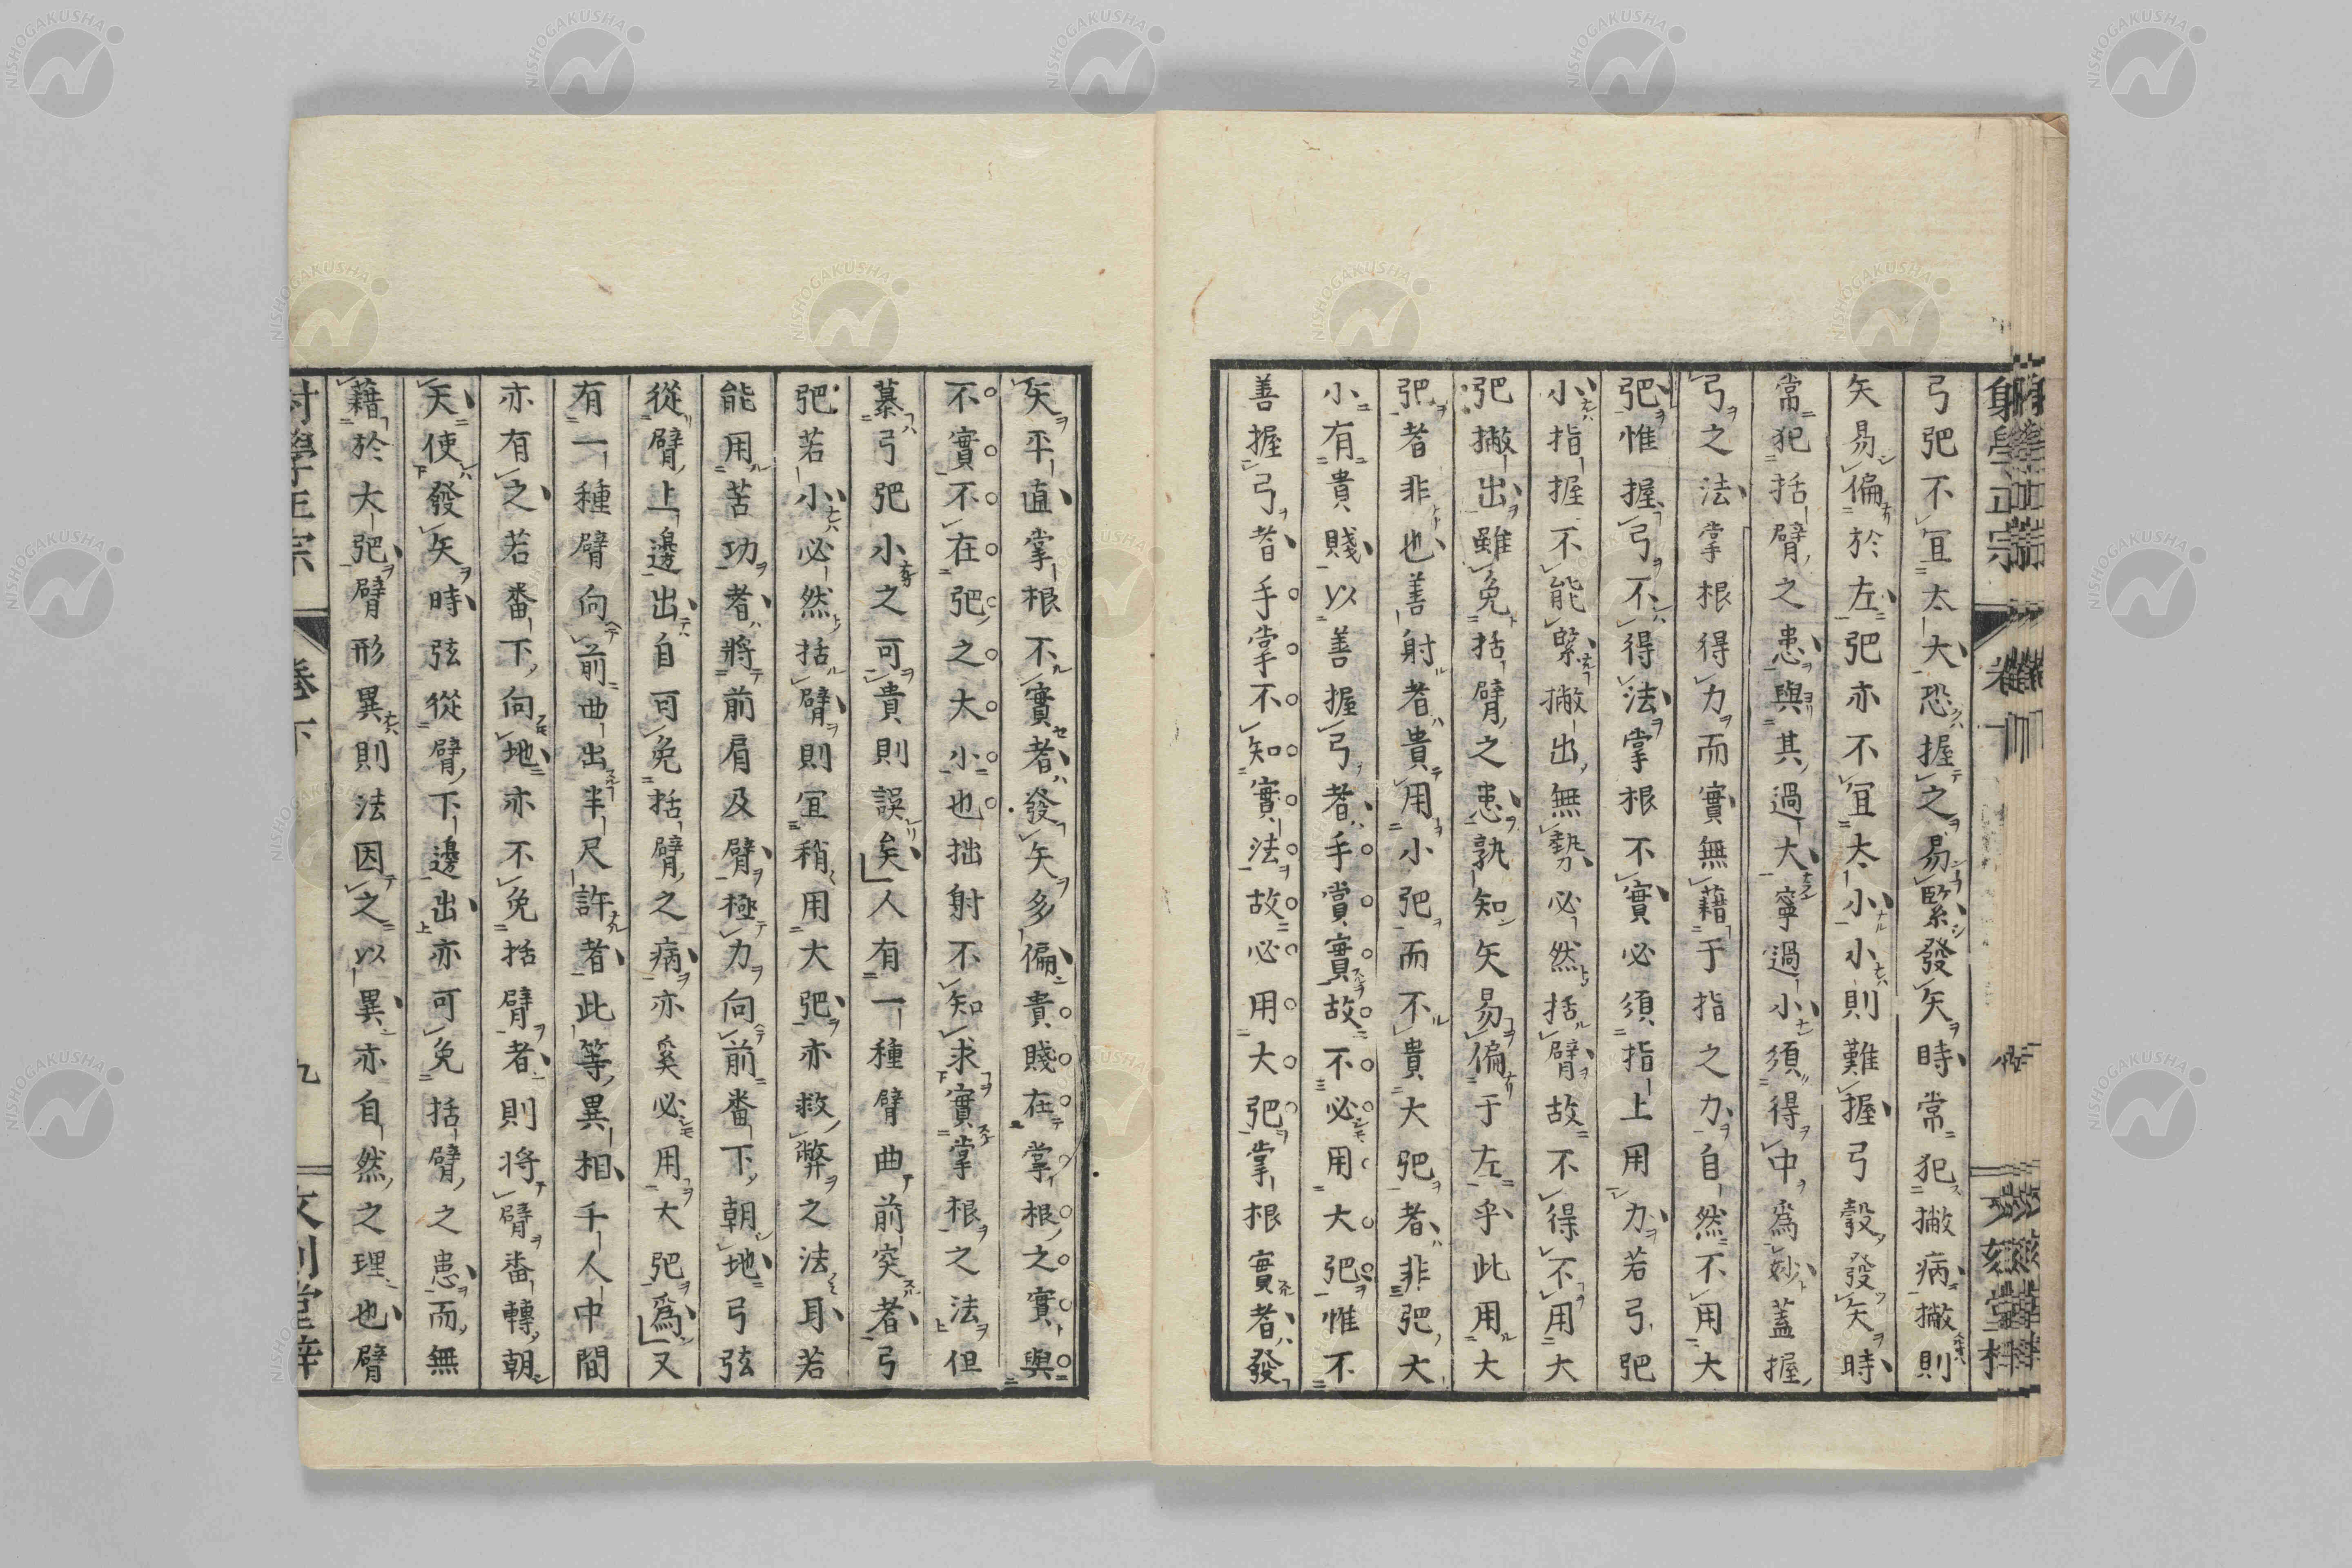 弓弝不宜太大恐握之易緊發矢時常犯撇病撇則
矢易偏於左弝亦不宜太小小則難握弓彀發矢時
常犯括臂之患與其過大寧過小須得中爲妙蓋握
弓之法掌根得力而實無藉于指之力自然不用大
弝惟握弓不得法掌根不實必須指上用力若弓弝
小指握不能緊撇出無勢必然括臂故不得不用大
弝撇出雖免括臂之患孰知矢易偏于左乎此用大
弝者非也善射者貴用小弝而不貴大弝者非弝大
小有貴賤以善握弓者手掌實故不必用大弝惟不
善握弓者手掌不知實法故必用大弝掌根實者發
矢平直掌根不實者發矢多偏貴賤在掌根之實與
不實不在弝之大小也拙射不知求實掌根之法但
慕弓弝小之可貴則誤矣人有一種臂曲前突者弓
弝若小必然括臂則宜稍用大弝亦救弊之法耳若
能用苦功者將前肩及臂極力向前番下朝地弓弦
從臂上邊出自可免括臂之病亦奚必用大弝爲又
有一種臂向前曲出半尺許者此等異相千人中間
亦有之若番下向地亦不免括臂者則將臂番轉朝
天使發矢時弦從臂下邊出亦可免括臂之患而無
藉於大弝臂形異則法因之以異亦自然之理也臂
射學正宗
卷下
九
文刻堂梓
NISHOGAKUSHA